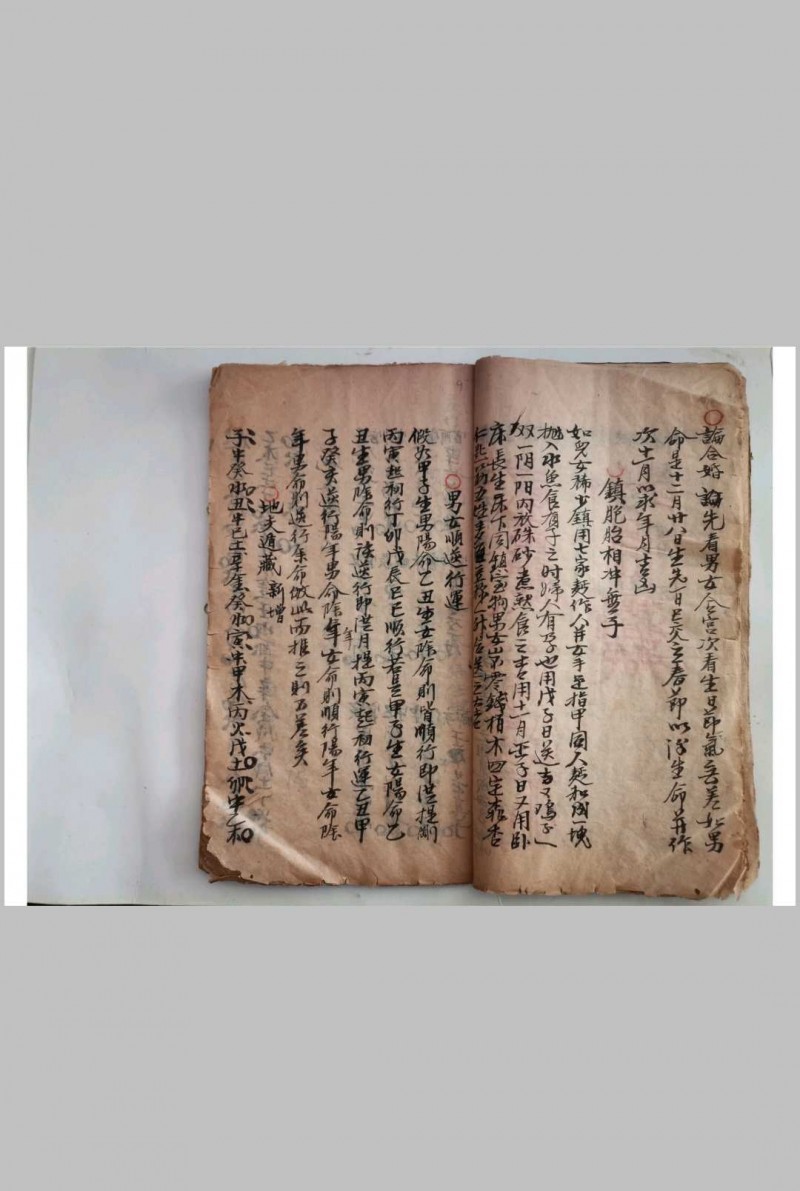 論合婚 論先看男女合宮次看生日節氣無差如男
命是十二月廿八日生先一日已交立春節以後生命并作
次十二月以求年月吉凶
鎮胞胎相冲無子
如兒女稀少鎮用七家麪作人并女手足指甲同人麪和成一塊
抛入水魚食有子之時婦人有孕也用戊子日送吉又鸡子一
双一阴一阳内放硃砂煮熟食之吉用十一月壬子日又用卧
床長生床下同鎮宅物男女
男女順逆行運
假如甲子生男陽命乙丑生女陰命則皆順行即從提剛
丙寅起初行丁卯戊辰己巳順行若是甲子生女陽命乙
丑生男陰命則該逆行即從月提丙寅起初行運乙丑甲
子癸亥逆行陽年男命陰年女命則順行陽年女命陰
年男命則逆行余命倣此而推之則万無差矣
地支遁藏 新增
子中癸水丑中己土辛金癸水寅中甲木丙火戊土卯中乙木